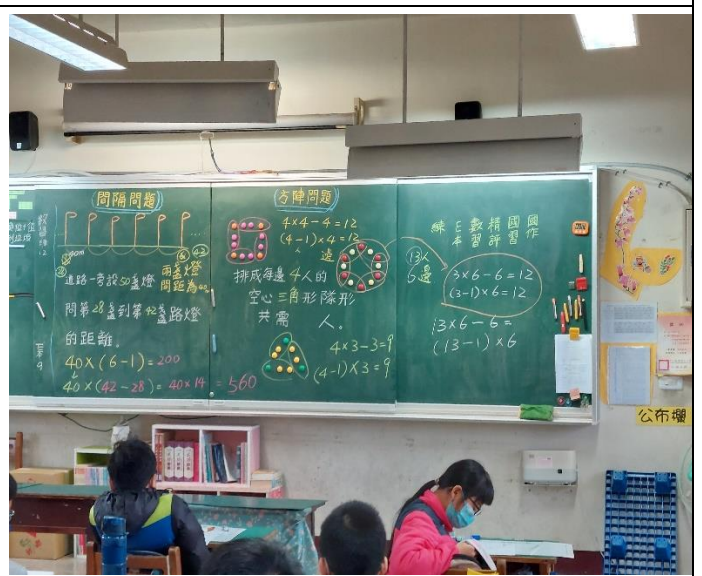 間隔問題
42
道路一旁設50盞燈
兩盞燈
間距為40
問第28盞到第42盞路燈
的距離。
40×(6-1)=200
40×(42-28)=40×14=560
方陣問題
4×4-4=12
(4-1)×4=12
邊
排成每邊4人的
空心三角形隊形
共需 人。
4×3-3=9
(4-1)×3=9
13人
6邊
3×6-6=12
(3-1)×6=12
13×6-6=
(13-1)×6
E數精國國
本習評習作
公布欄